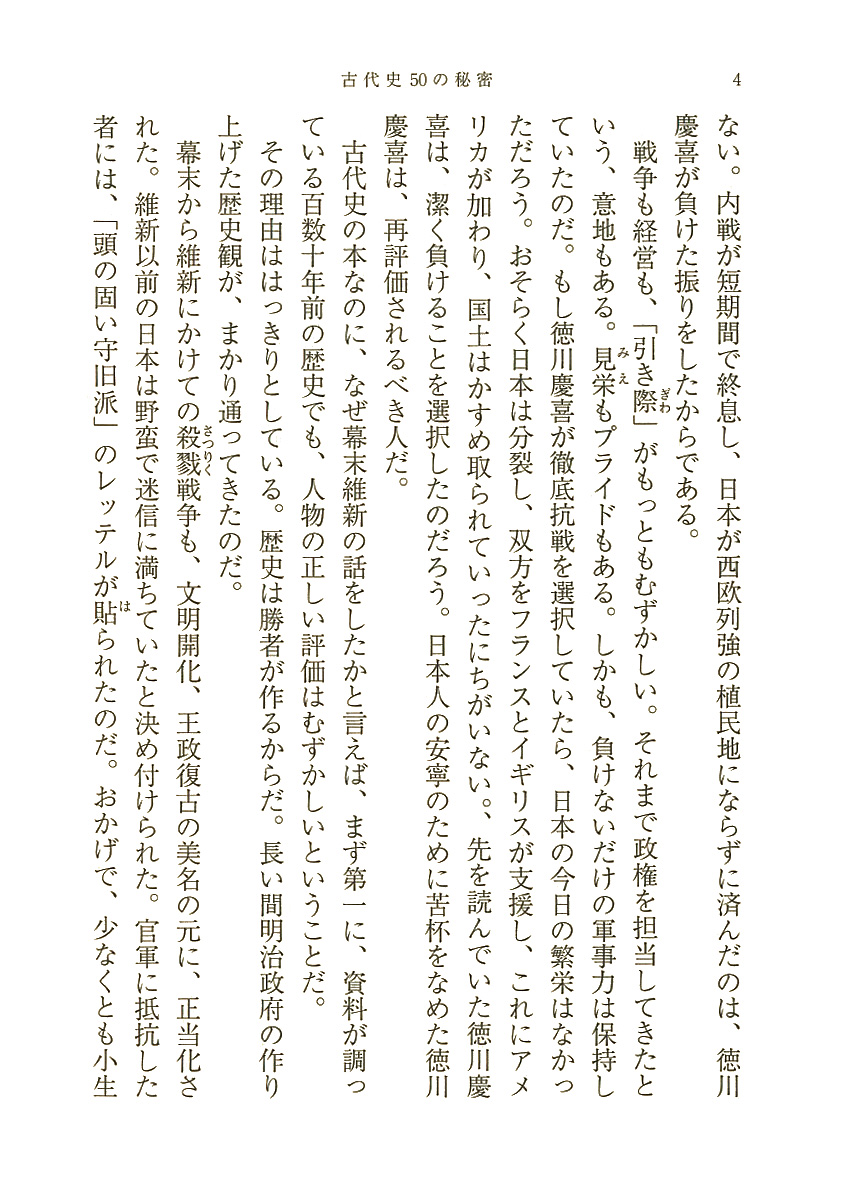 古代史50の秘密
4
ない。内戦が短期間で終息し、日本が西欧列強の植民地にならずに済んだのは、徳川
慶喜が負けた振りをしたからである。
戦争も経営も、「引き際」がもっともむずかしい。それまで政権を担当してきたと
いう、意地もある。見栄もプライドもある。しかも、負けないだけの軍事力は保持し
ていたのだ。もし徳川慶喜が徹底抗戦を選択していたら、日本の今日の繁栄はなかっ
ただろう。おそらく日本は分裂し、双方をフランスとイギリスが支援し、これにアメ
リカが加わり、国土はかすめ取られていったにちがいない。、先を読んでいた徳川慶
喜は、潔く負けることを選択したのだろう。日本人の安寧のために苦杯をなめた徳川
慶喜は、再評価されるべき人だ。
古代史の本なのに、なぜ幕末維新の話をしたかと言えば、まず第一に、資料が調っ
ている百数十年前の歴史でも、人物の正しい評価はむずかしいということだ。
その理由ははっきりとしている。歴史は勝者が作るからだ。長い間明治政府の作り
上げた歴史観が、まかり通ってきたのだ。
幕末から維新にかけての殺戮戦争も、文明開化、王政復古の美名の元に、正当化さ
れた。維新以前の日本は野蛮で迷信に満ちていたと決め付けられた。官軍に抵抗した
者には、「頭の固い守旧派」のレッテルが貼られたのだ。おかげで、少なくとも小生